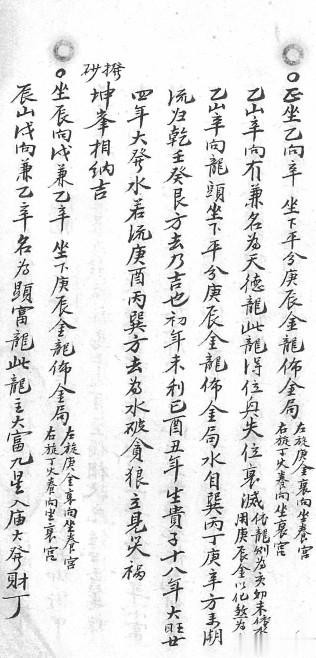 正坐乙向辛 坐下平分庚辰金龍佈金局 左旋庚金衰向坐養宮 右旋丁火養向坐衰宮
乙山辛向有兼名為天德龍此龍得位與失位衰滅 依龍別為亥卯未 用庚辰金以化煞為
乙山辛向龍頭坐下平分庚辰金龍佈金局水自巽丙丁庚辛方來朝
流归乾壬癸艮方去乃吉也初年未利巳酉丑年生貴子十八年大旺廿
四年大發水若流庚酉丙巽方去為水破貪狼立見災禍
撥砂 坤峯相納吉
坐辰向戌兼乙辛 坐下庚辰金龍佈金局 左旋庚金衰向坐養宮 右旋丁火養向坐衰宮
辰山戌向兼乙辛名為顯富龍此龍主大富九星入庙大發財丁